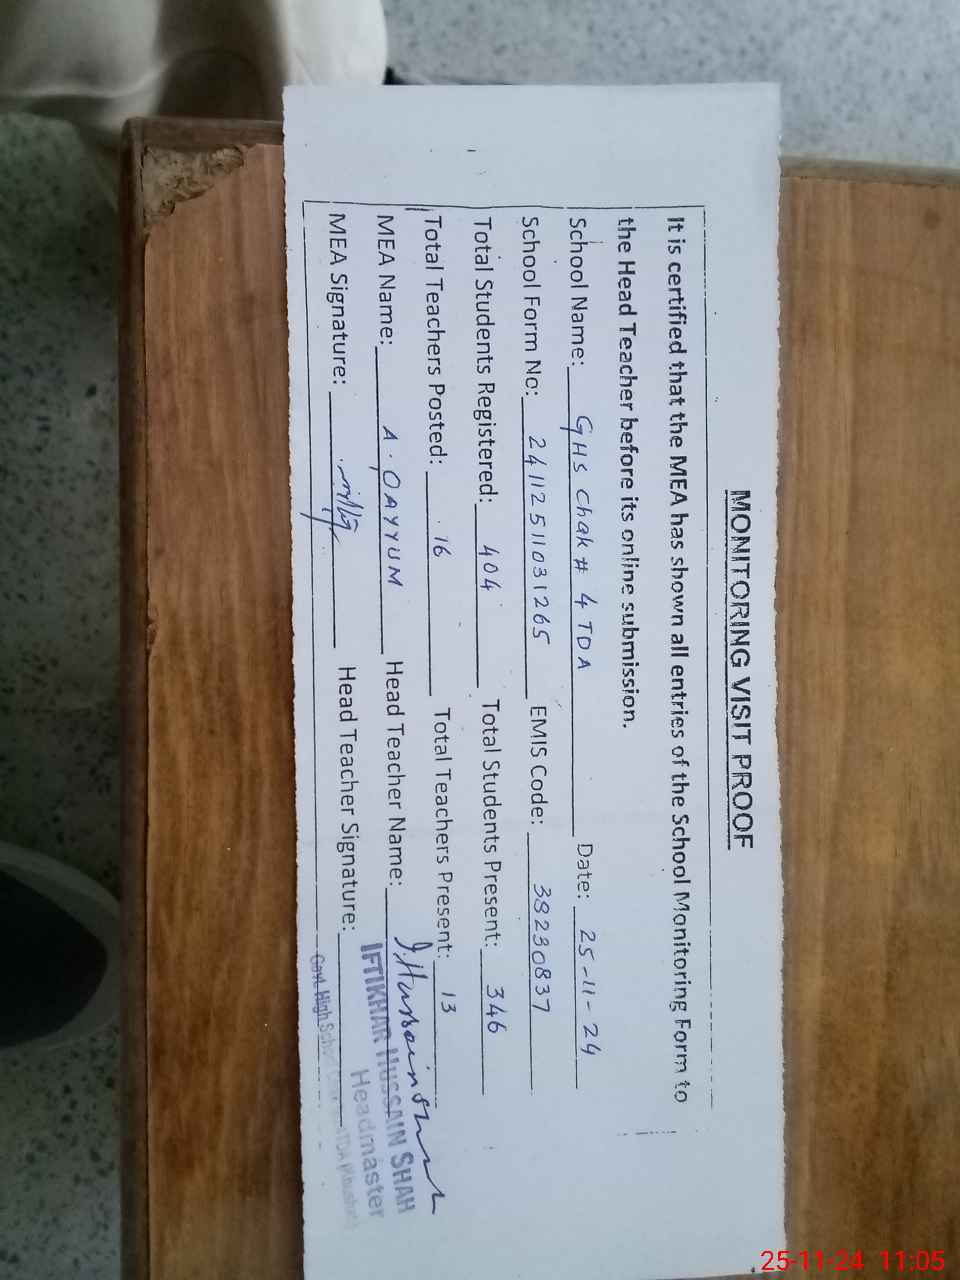 MONITORING VISIT PROOF
It is certified that the MEA has shown all entries of the School Monitoring Form to
the Head Teacher before its online submission.
School Name: GHS Chak # 4 TDA Date: 25-11-24
School Form No: 24112511031265 EMIS Code: 38230837
Total Students Registered: 404 Total Students Present: 346
Total Teachers Posted: 16 Total Teachers Present: 13
MEA Name: A. QAYYUM Head Teacher Name: I. Hussain Shah
MEA Signature: Head Teacher Signature:
IFTIKHAR HUSSAIN SHAH
Headmaster
Govt. High School TDA
25-11-24 11:05